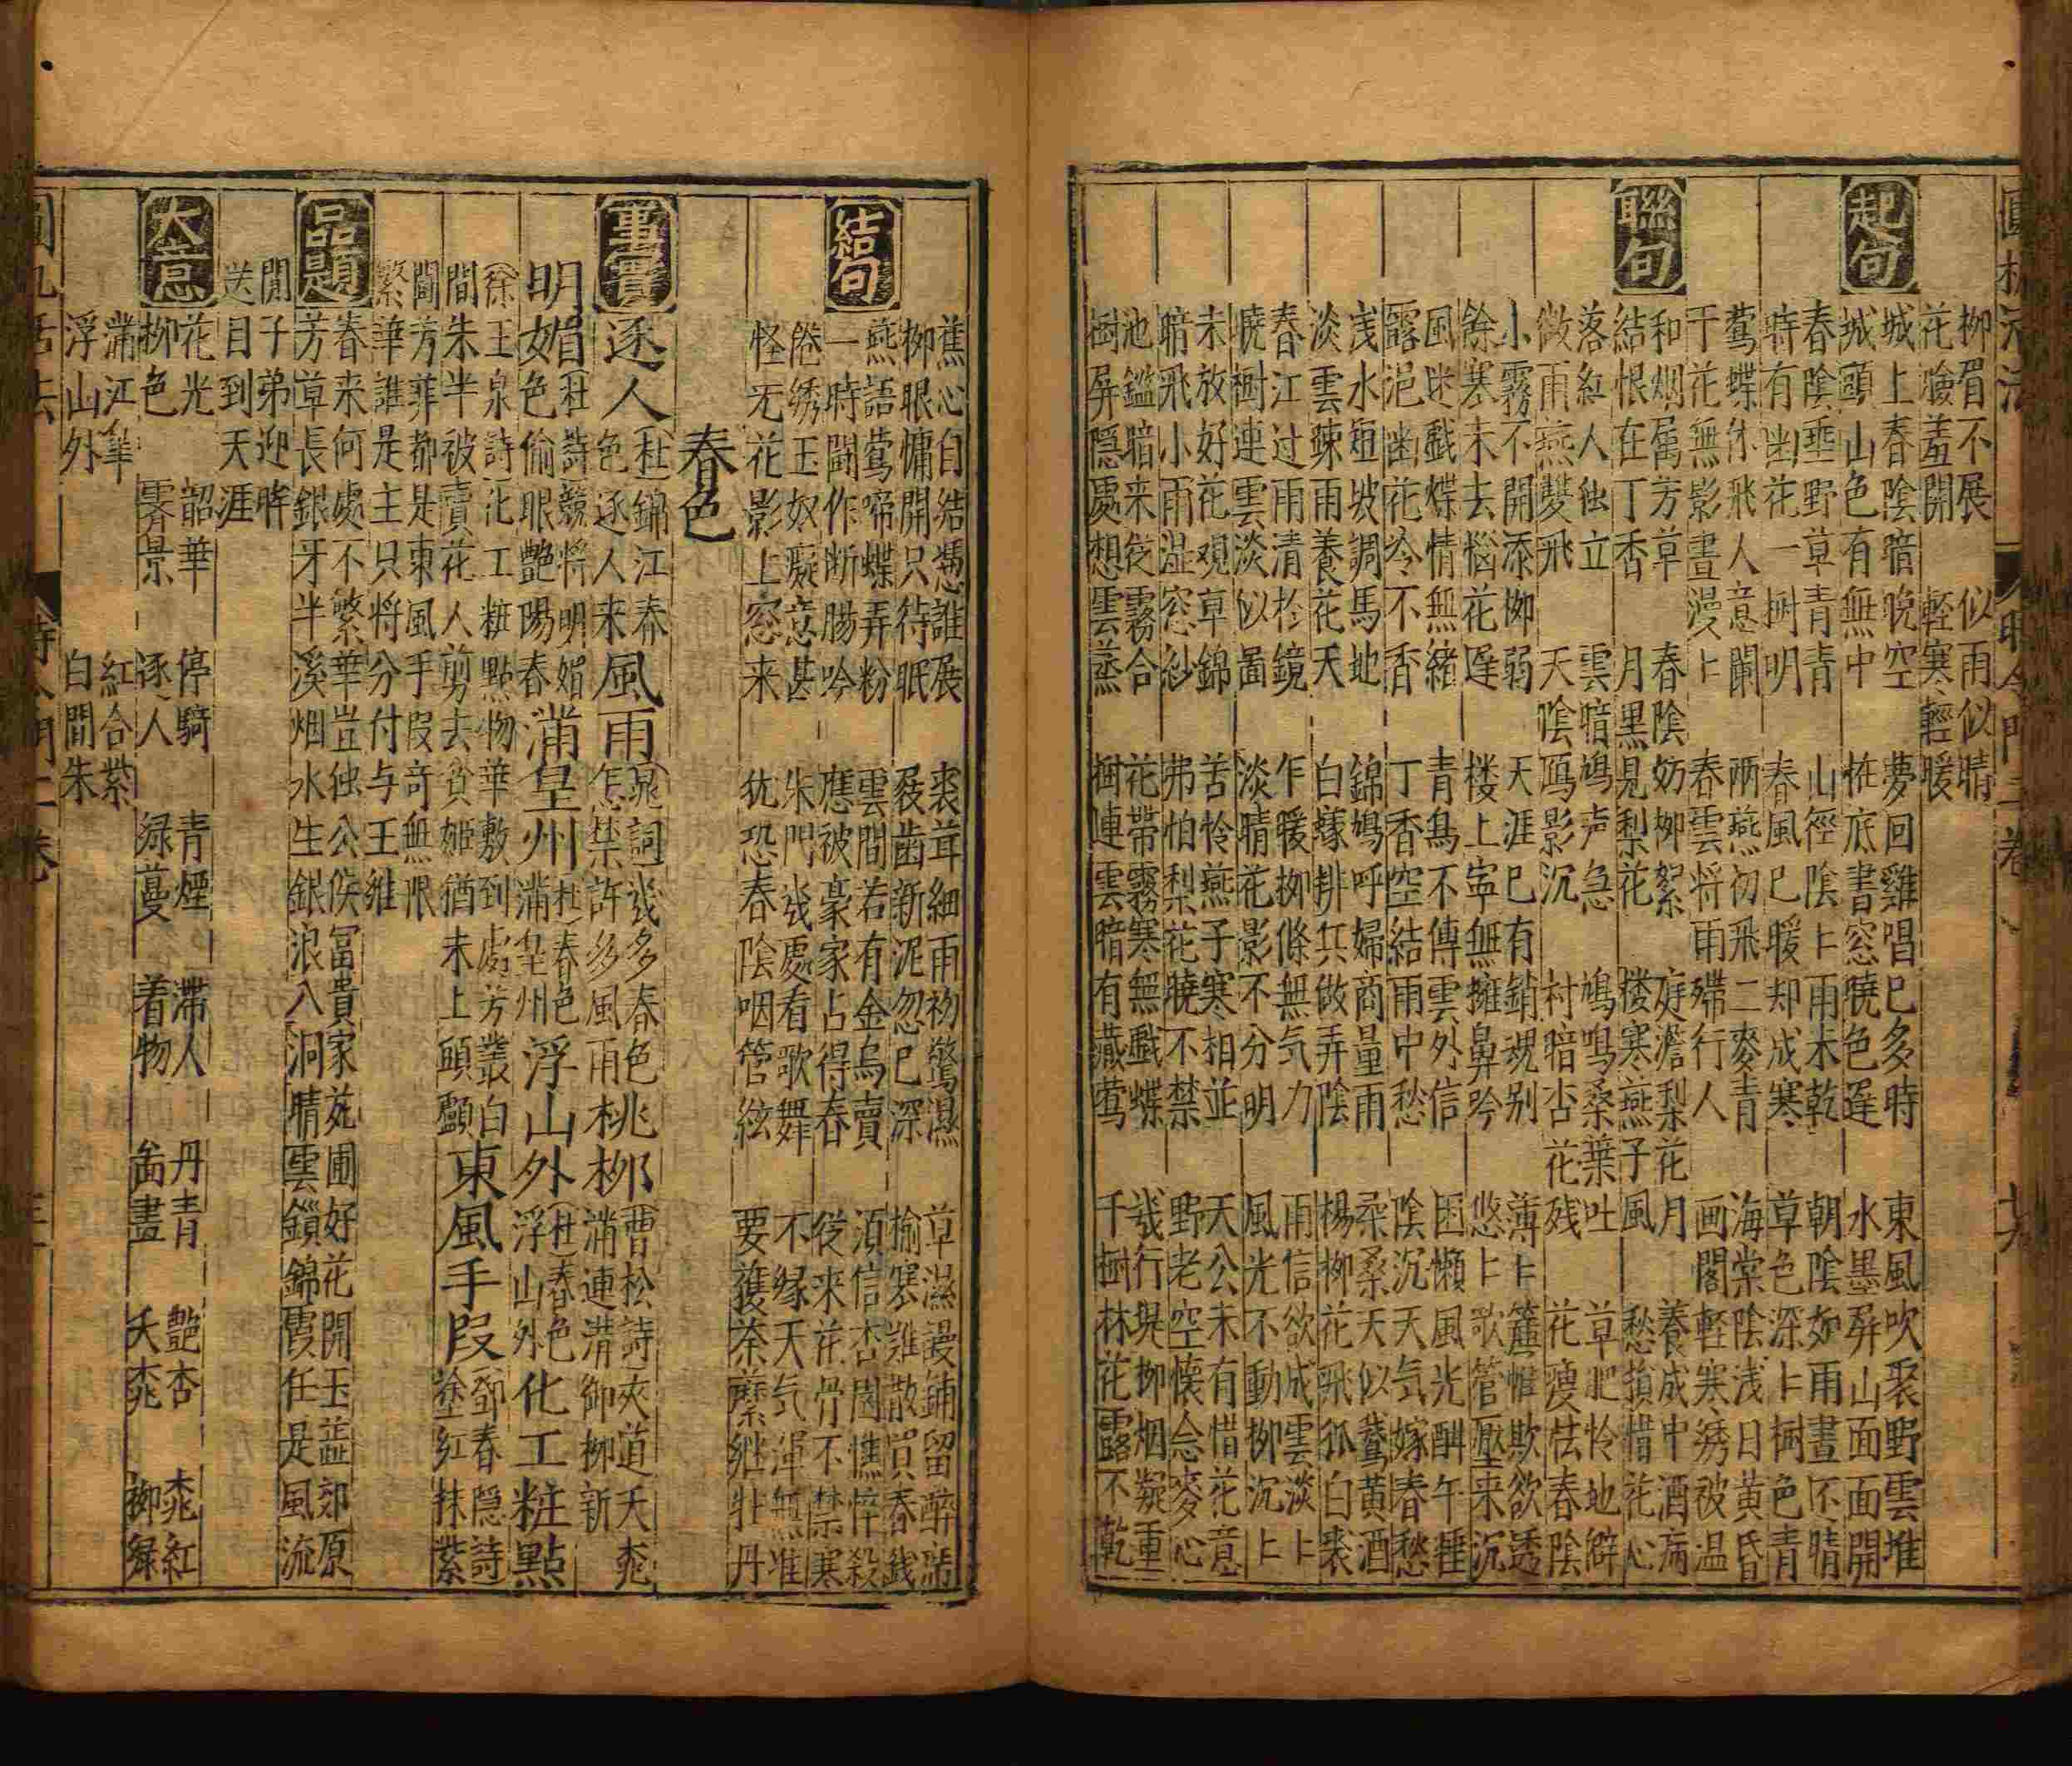 圓机活法 時令門二卷 十六
柳眉不展 似雨似晴
花臉羞開 輕寒輕暖
起句
城上春陰暗晚空 夢回雞唱已多時 東風吹裂野雲堆
城頭山色有無中 底書窓曉色遲 水墨屏山面面開
春陰垂野草青青 山徑陰〻雨未乾 朝陰如雨晝不晴
時有幽花一樹明 春風已暖却成寒 草色深〻樹色青
聯句
鶯蝶休飛人意闌 兩燕初飛二麥青 海棠陰浅日黄昏
于花無影晝漫〻 春雲将雨殢行人 画閣輕寒綉被温
和烟属芳草 春陰妨柳絮 庭澹梨花月 養成中酒病
結恨在丁香 月黒見梨花 楼寒燕子風 愁損惜花心
落紅人独立 雲暗鳩声急 鳩鳴桑葉吐 草肥怜地僻
微雨燕雙飛 天陰鴈影沉 村暗杏花残 花瘦怯春陰
小霧不開添柳弱 天涯已有銷魂别 薄〻簾帷欺欲透
餘寒未去惱花遲 楼上寧無擁鼻吟 悠〻歌管壓来沉
風迷戯蝶情無緒 青鳥不傳雲外信 困懶風光酣午睡
露浥幽花冷不香 丁香空結雨中愁 陰沉天气嫁春愁
浅水短坡調馬地 錦鳩呼婦商量雨 柔桑天似鵞黄酒
淡雲疎雨養花天 白蟻排兵做弄陰 楊柳花飛狐白裘
春江过雨清於鏡 乍暖柳條無气力 雨信欲成雲淡〻
曉樹連雲淡似啚 淡晴花影不分明 風光不動柳沉〻
未放好花观草錦 苦怜燕子寒相並 天公未有惜花意
暗飛小雨湿窓紗 弗怕梨花曉不禁 野老空懐念麥心
池鑑暗来従霧合 花帶霧寒無戲蝶 幾行堤柳烟凝重
樹屏隠處想雲蒸 樹連雲暗有藏鶯 千樹林花露不乾
結句
蕉心自結凴誰展 裘茸細雨初驚濕 草濕漫鋪留醉
柳眼慵開只待眠 屐歯新泥忽已深 榆寒難散買春錢
燕語鶯啼蝶弄粉 雲間若有金烏賣 須信杏園憔悴殺
一時閙作断腸吟 應被豪家占得春 従来花骨不禁寒
倦綉玉奴癡意甚 朱門幾處看歌舞 不縁天气渾無准
怪无花影上窓来 犹恐春陰咽管絃 要護荼䕷継牡丹
春色
事實
逐人 杜 錦江春色逐人来 風雨 晁詞 幾多春色怎禁許多風雨 桃柳 曹松詩 夾道天桃滿連清御柳新
明媚 杜詩 競將明媚色偷眼艶陽春 滿皇州 杜 春色滿皇州 浮山外 杜 春色浮山外 化工粧點
徐王泉詩 化工粧點物華敷到處芳叢白間朱半被賣花人剪去貧姬猶未上頭顱 東風手段 鄧春隠詩 塗紅抹紫
閙芳菲都是東風手段竒無限
繁華誰是主只将分付与王維
品題
春来何處不繁華豈独公侯冨貴家苑圃好花開玉蕋郊原
芳草長銀牙半溪烟水生銀浪入洞晴雲鎖錦霞任是風流
閒子弟迎眸
送目到天涯
大意
花光 韶華 停騎 青煙 滞人 丹青 艶杏 桃紅
柳色 霽景 逐人 緑蔓 着物 啚畫 夭桃 柳緑
滿江華 紅合紫
浮山外 白間朱
圓机活法 時令門二卷